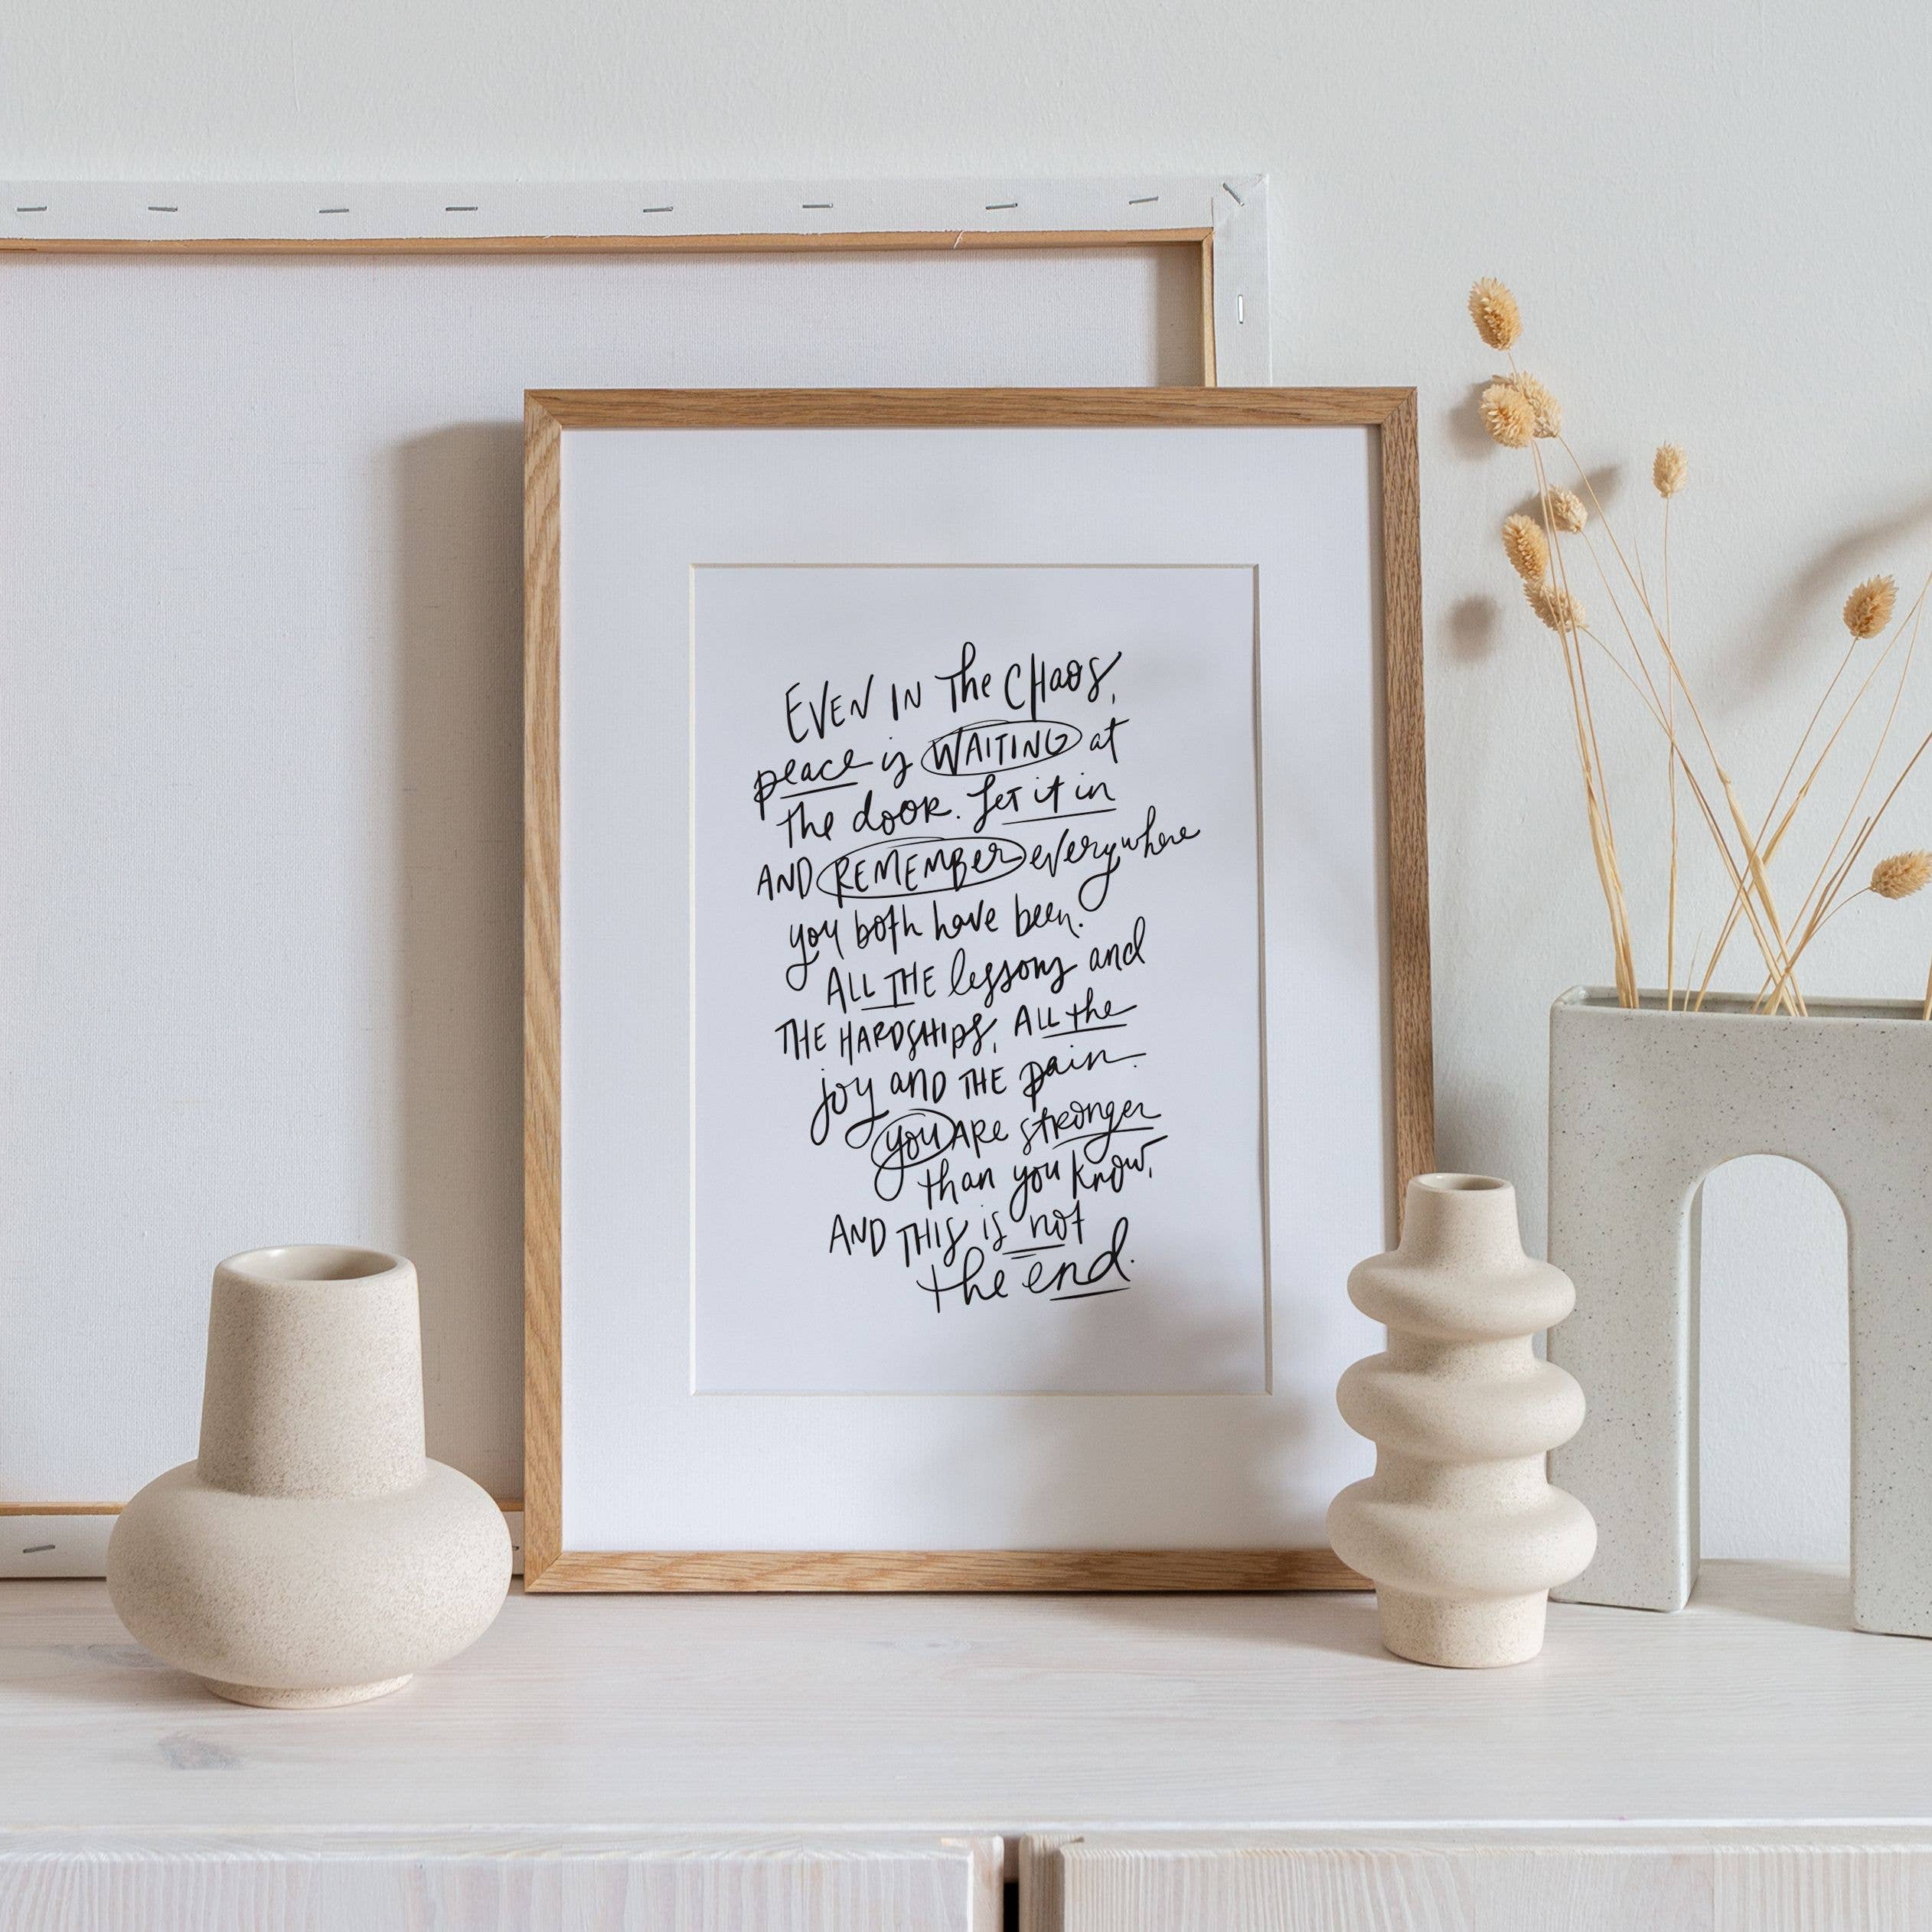 EVEN IN The CHaos,
peace is WAITING at
the dooR. LeT it in
AND REMEMBer everywhere
you both have been.
ALL THE lessons and
THE HARDSHIPS, ALL the
joy anD THE pain.
you ARe stronger
than you know,
AND THIS is not
the end.